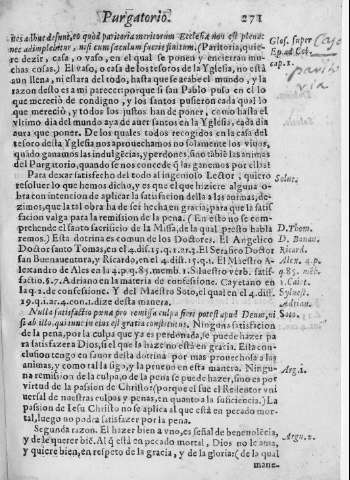 Purgatorio. 271
nes adhuc desunt, eo quòd paritoria meritorum Ecclesiæ non est plena:
nec adimplebitur, nisi cum sæculum fuerit finitum. (Paritoria, quie-
re dezir, casa, o vaso, en el qual se ponen y encierran mu-
chas cosas.) El vaso, o casa de los tesoros de la Yglesia, no està
aun llena, ni estara del todo, hasta que se acabe el mundo, y la
razon desto es a mi parecer: porque si san Pablo puso en el lo
que merecio de condigno, y los santos pusieron cada qual lo
que merecio, y todos los justos han de poner, como hasta el
vltimo dia del mundo aya de auer santos en la Yglesia, cada dia
aura que poner. De los quales todos recogidos en la casa del
tesoro desta Yglesia nos aprouechamos no solamente los viuos,
quãdo ganamos las indulgẽcias, y perdones, sino tãbiẽ las animas
del Purgatorio, quando se nos concede q̃ las ganemos por ellas?
Para dexar satisfecho del todo al ingenioso Lector, quiero
resoluer lo que hemos dicho, y es que el que hiziere alguna o-
bra con intencion de aplicar la satisfacion della a las animas, de-
zimos, que la tal obra ha de ser hecha en gracia, para que la satis
facion valga para la remission de la pena. (En esto no se com-
prehende el santo sacrificio de la Missa, de la qual presto habla
remos.) Esta dotrina es comun de los Doctores. El Angelico
Doctor santo Tomas, en el 4. dis. 15. q. 1. ar. 3. El Serafico Doctor
san Buenauentura, y Ricardo, en el 4. dist. 15. q. 1. El Maestro A-
lexandro de Ales en la 4. p. q. 85. memb. 1. Siluestro verb. satis-
factio. §. 7. Adriano en la materia de confessione. Cayetano en
la q. 2. de confessione. Y del Maestro Soto, el qual en el 4. dist.
19. q. 1. ar. 4. con. 1. dize desta manera.
Nulla satisfactio pœna pro remissa culpa fieri potest apud Deum, ni
si ab illo, qui nunc in eius est gratia constitutus. Ninguna satisfacion
de la pena, por la culpa que ya es perdonada, se puede hazer pa
ra satisfazer a Dios, si el que la haze no està en gracia. Esta con-
clusion tengo en fauor desta dotrina por mas prouechosa a las
animas, y como tal la sigo, y la prueuo en esta manera. Ningu-
na remission de la culpa, o de la pena se puede hazer, sino es por
virtud de la passion de Christo: (porque el fue el Redentor vni
uersal de nuestras culpas y penas, en quanto a la suficiencia.) La
passion de Iesu Christo no se aplica al que està en pecado mor-
tal, luego no podra satisfazer por la pena.
Segunda razon. El hazer bien a vno, es señal de beneuolẽcia,
y de le querer biẽ. Al q̃ està en pecado mortal, Dios no le ama,
y quiere bien, en respeto de la gracia, y de la gloria: (de la qual
mane-
Glos. super
Ep. ad Col.
cap. 1.
Solut.
D. Thom.
D. Bonau.
Ricard.
Alex. 4. p.
q. 85. mẽ.
1. Caiet.
Syluest.
Adrian.
Soto.
Arg. 1.
Argu. 2.